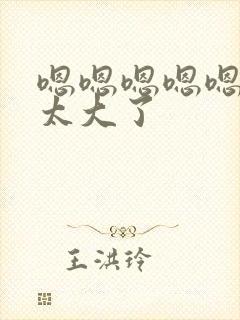 嗯嗯嗯嗯嗯
太大了
王洪玲